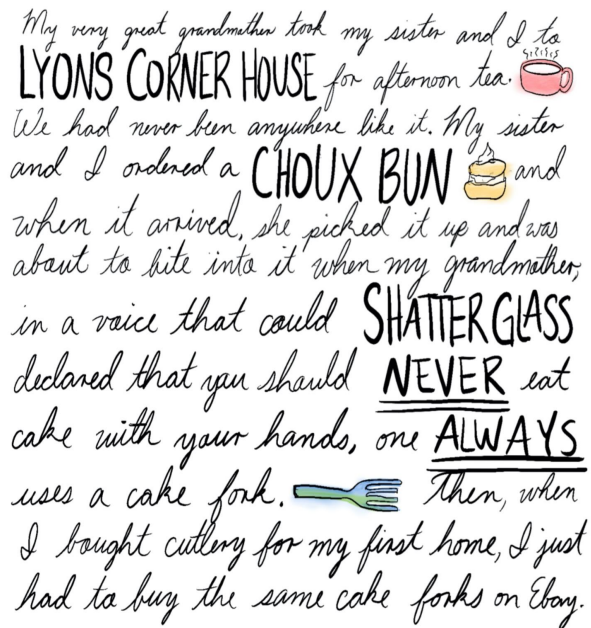 My very great grandmother took my sister and I to
LYONS CORNER HOUSE for afternoon tea.
We had never been anywhere like it. My sister
and I ordered a CHOUX BUN and
when it arrived, she picked it up and was
about to bite into it when my grandmother,
in a voice that could SHATTER GLASS
declared that you should NEVER eat
cake with your hands, one ALWAYS
uses a cake fork. Then, when
I bought cutlery for my first home, I just
had to buy the same cake forks on Ebay.